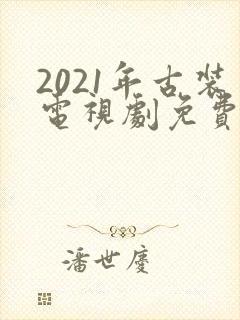 2021年古装
電視劇免費
潘世慶